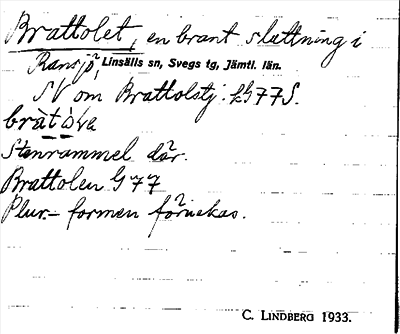 Brattolet, en brant sluttning i
Ransjö, Linsälls sn, Svegs tg, Jämtl. län.
SV om Brattolstj. LG77S.
Stenrammel där.
Brattolen G77
Plur.- formen förnekas.
C. LINDBERG 1933.